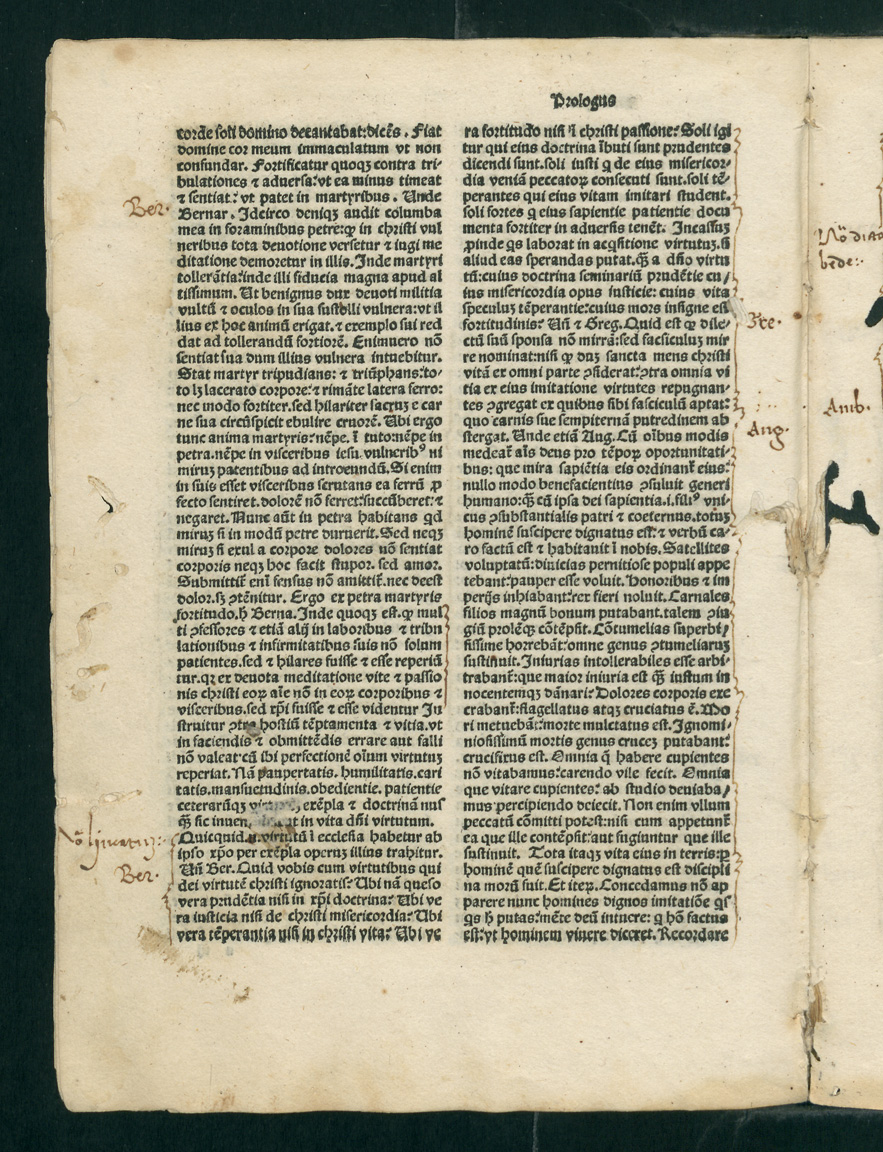 Prologus
corde soli domino decantabat: dicēs. Fiat
domine cor meum immaculatum vt non
confundar. Fortificatur quoqꝫ contra tri-
bulationes ⁊ aduersa: vt ea minus timeat
⁊ sentiat: vt patet in martyribus. Unde
Bernar. Idcirco deniqꝫ audit columba
mea in foraminibus petre: ꝙ in christi vul
neribus tota deuotione versetur ⁊ iugi me
ditatione demoretur in illis. Inde martyri
tollerātia: inde illi fiducia magna apud al
tissimum. Ut benignus dux deuoti militia
vultū ⁊ oculos in sua sustolli vulnera: vt il
lius ex hoc animū erigat. ⁊ exemplo sui red
dat ad tollerandū fortiorē. Enimuero nō
sentiat sua dum illius vulnera intuebitur.
Stat martyr tripudians: ⁊ triūphans: to-
to lꝫ lacerato corpore: ⁊ rimāte latera ferro:
nec modo fortiter. sed hilariter sacrꝫ e car
ne sua circūspicit ebulire cruorē. Ubi ergo
tunc anima martyris: nēpe. ī tuto: nēpe in
petra. nēpe in visceribus iesu. vulneribꝰ ni
mirꝫ patentibus ad introeundū. Si enim
in suis esset visceribus scrutans ea ferrū ꝓ
fecto sentiret. dolorē nō ferret: succūberet: ⁊
negaret. Nunc aūt in petra habitans qd
mirꝫ si in modū petre duruerit. Sed neqꝫ
mirꝫ si exul a corpore dolores nō sentiat
corporis neqꝫ hoc facit stupor. sed amor.
Submittit̄ enī sensus nō amittit̄. nec deest
dolor. sꝫ ꝯtēnitur. Ergo ex petra martyris
fortitudo. h̄ Berna. Inde quoqꝫ est. ꝙ mul
ti ꝯfessores ⁊ etiā alij in laboribus ⁊ tribu
lationibus ⁊ infirmitatibus suis nō solum
patientes. sed ⁊ hilares fuisse ⁊ esse reperiū
tur. qꝛ ex deuota meditatione vite ⁊ passio
nis christi eoꝝ aīe nō in eoꝝ corporibus ⁊
visceribus. sed xp̄i fuisse ⁊ esse videntur In
struitur ꝯtra hostiū tēptamenta ⁊ vitia. vt
in faciendis ⁊ obmittēdis errare aut falli
nō valeat: cū ibi perfectionē oīum virtutꝫ
reperiat. Nā paupertatis. humilitatis. cari
tatis. mansuetudinis. obedientie. patientie
ceterarūqꝫ exēpla ⁊ doctrinā nus
ꝙ̄ sic in vita dn̄i virtutum.
Quicquid virtutū ī ecclesia habetur ab
ipso xp̄o per exēpla operꝫ illius trahitur.
Un̄ Ber. Quid vobis cum virtutibus qui
dei virtutē christi ignoratis? Ubi nā queso
vera prudētia nisi in xp̄i doctrina? Ubi ve
ra iusticia nisi de christi misericordia? Ubi
vera tēperantia nisi in christi vita? Ubi ve
ra fortitudo nisi ī christi passione? Soli igi
tur qui eius doctrina ībuti sunt prudentes
dicendi sunt. soli iusti q de eius misericor-
dia veniā peccatoꝝ consecuti sunt. soli tē-
perantes qui eius vitam imitari student.
soli fortes q eius sapientie patientie docu
menta fortiter in aduersis tenēt. Incassꝫ
ꝓinde qs laborat in acqsitione virtutꝫ. si
aliud eas sperandas putat. ꝙ̄ a dn̄o virtu
tū: cuius doctrina seminariū prudētie cu-
ius misericordia opus iusticie: cuius vita
speculꝫ tēperantie: cuius mors insigne est
fortitudinis? Un̄ ⁊ Greg. Quid est ꝙ dile-
ctū suū sponsa nō mirrā: sed fasciculꝫ mir
re nominat: nisi ꝙ dū sancta mens christi
vitā ex omni parte ꝯsiderat: ꝯtra omnia vi
tia ex eius imitatione virtutes repugnan-
tes ꝯgregat ex quibus sibi fasciculū aptat:
quo carnis sue sempiternā putredinem ab
stergat. Unde etiā Aug. Cū oībus modis
medeat̄ aīs deus pro tēpoꝝ oportunitati-
bus: que mira sapiētia eis ordinant̄ eius:
nullo modo benefacientius ꝯsuluit generi
humano: ꝙ̄ cū ipsa dei sapientia. i. filiꝰ vni-
cus ꝯsubstantialis patri ⁊ coeternus. totꝫ
hominē suscipere dignatus est: ⁊ verbū ca-
ro factū est ⁊ habitauit ī nobis. Satellites
voluptatū: diuicias pernitiose populi appe
tebant: pauper esse voluit. Honoribus ⁊ im
perijs inhiabant: rex fieri noluit. Carnales
filios magnū bonum putabant. talem ꝯiu-
giū prolēqꝫ cōtēpsit. Cōtumelias superbi-
ssime horrebāt: omne genus ꝯtumeliarꝫ
sustinuit. Iniurias intollerabiles esse arbi-
trabant̄: que maior iniuria est ꝙ̄ iustum in
nocentemqꝫ dānari? Dolores corporis exe
crabant̄: flagellatus atqꝫ cruciatus ē. Mo
ri metuebāt: morte mulctatus est. Ignomi-
niosissimū mortis genus cruceꝫ putabant:
crucifixus est. Omnia q habere cupientes
nō vitabamus: carendo vile fecit. Omnia
que vitare cupientes: ab studio deuiaba-
mus percipiendo deiecit. Non enim vllum
peccatū cōmitti potest: nisi cum appetunt̄
ea que ille contēpsit: aut fugiuntur que ille
sustinuit. Tota itaqꝫ vita eius in terris: ꝑ
hominē quē suscipere dignatus est discipli
na morū fuit. Et iteꝝ. Concedamus nō ap
parere nunc homines dignos imitatiōe qs
qs h̄ putas: mēte deū intuere: q hō factus
est: vt hominem viuere diceret. Recordare
Ber.
Ber.
Amb.
Aug.
bede:.